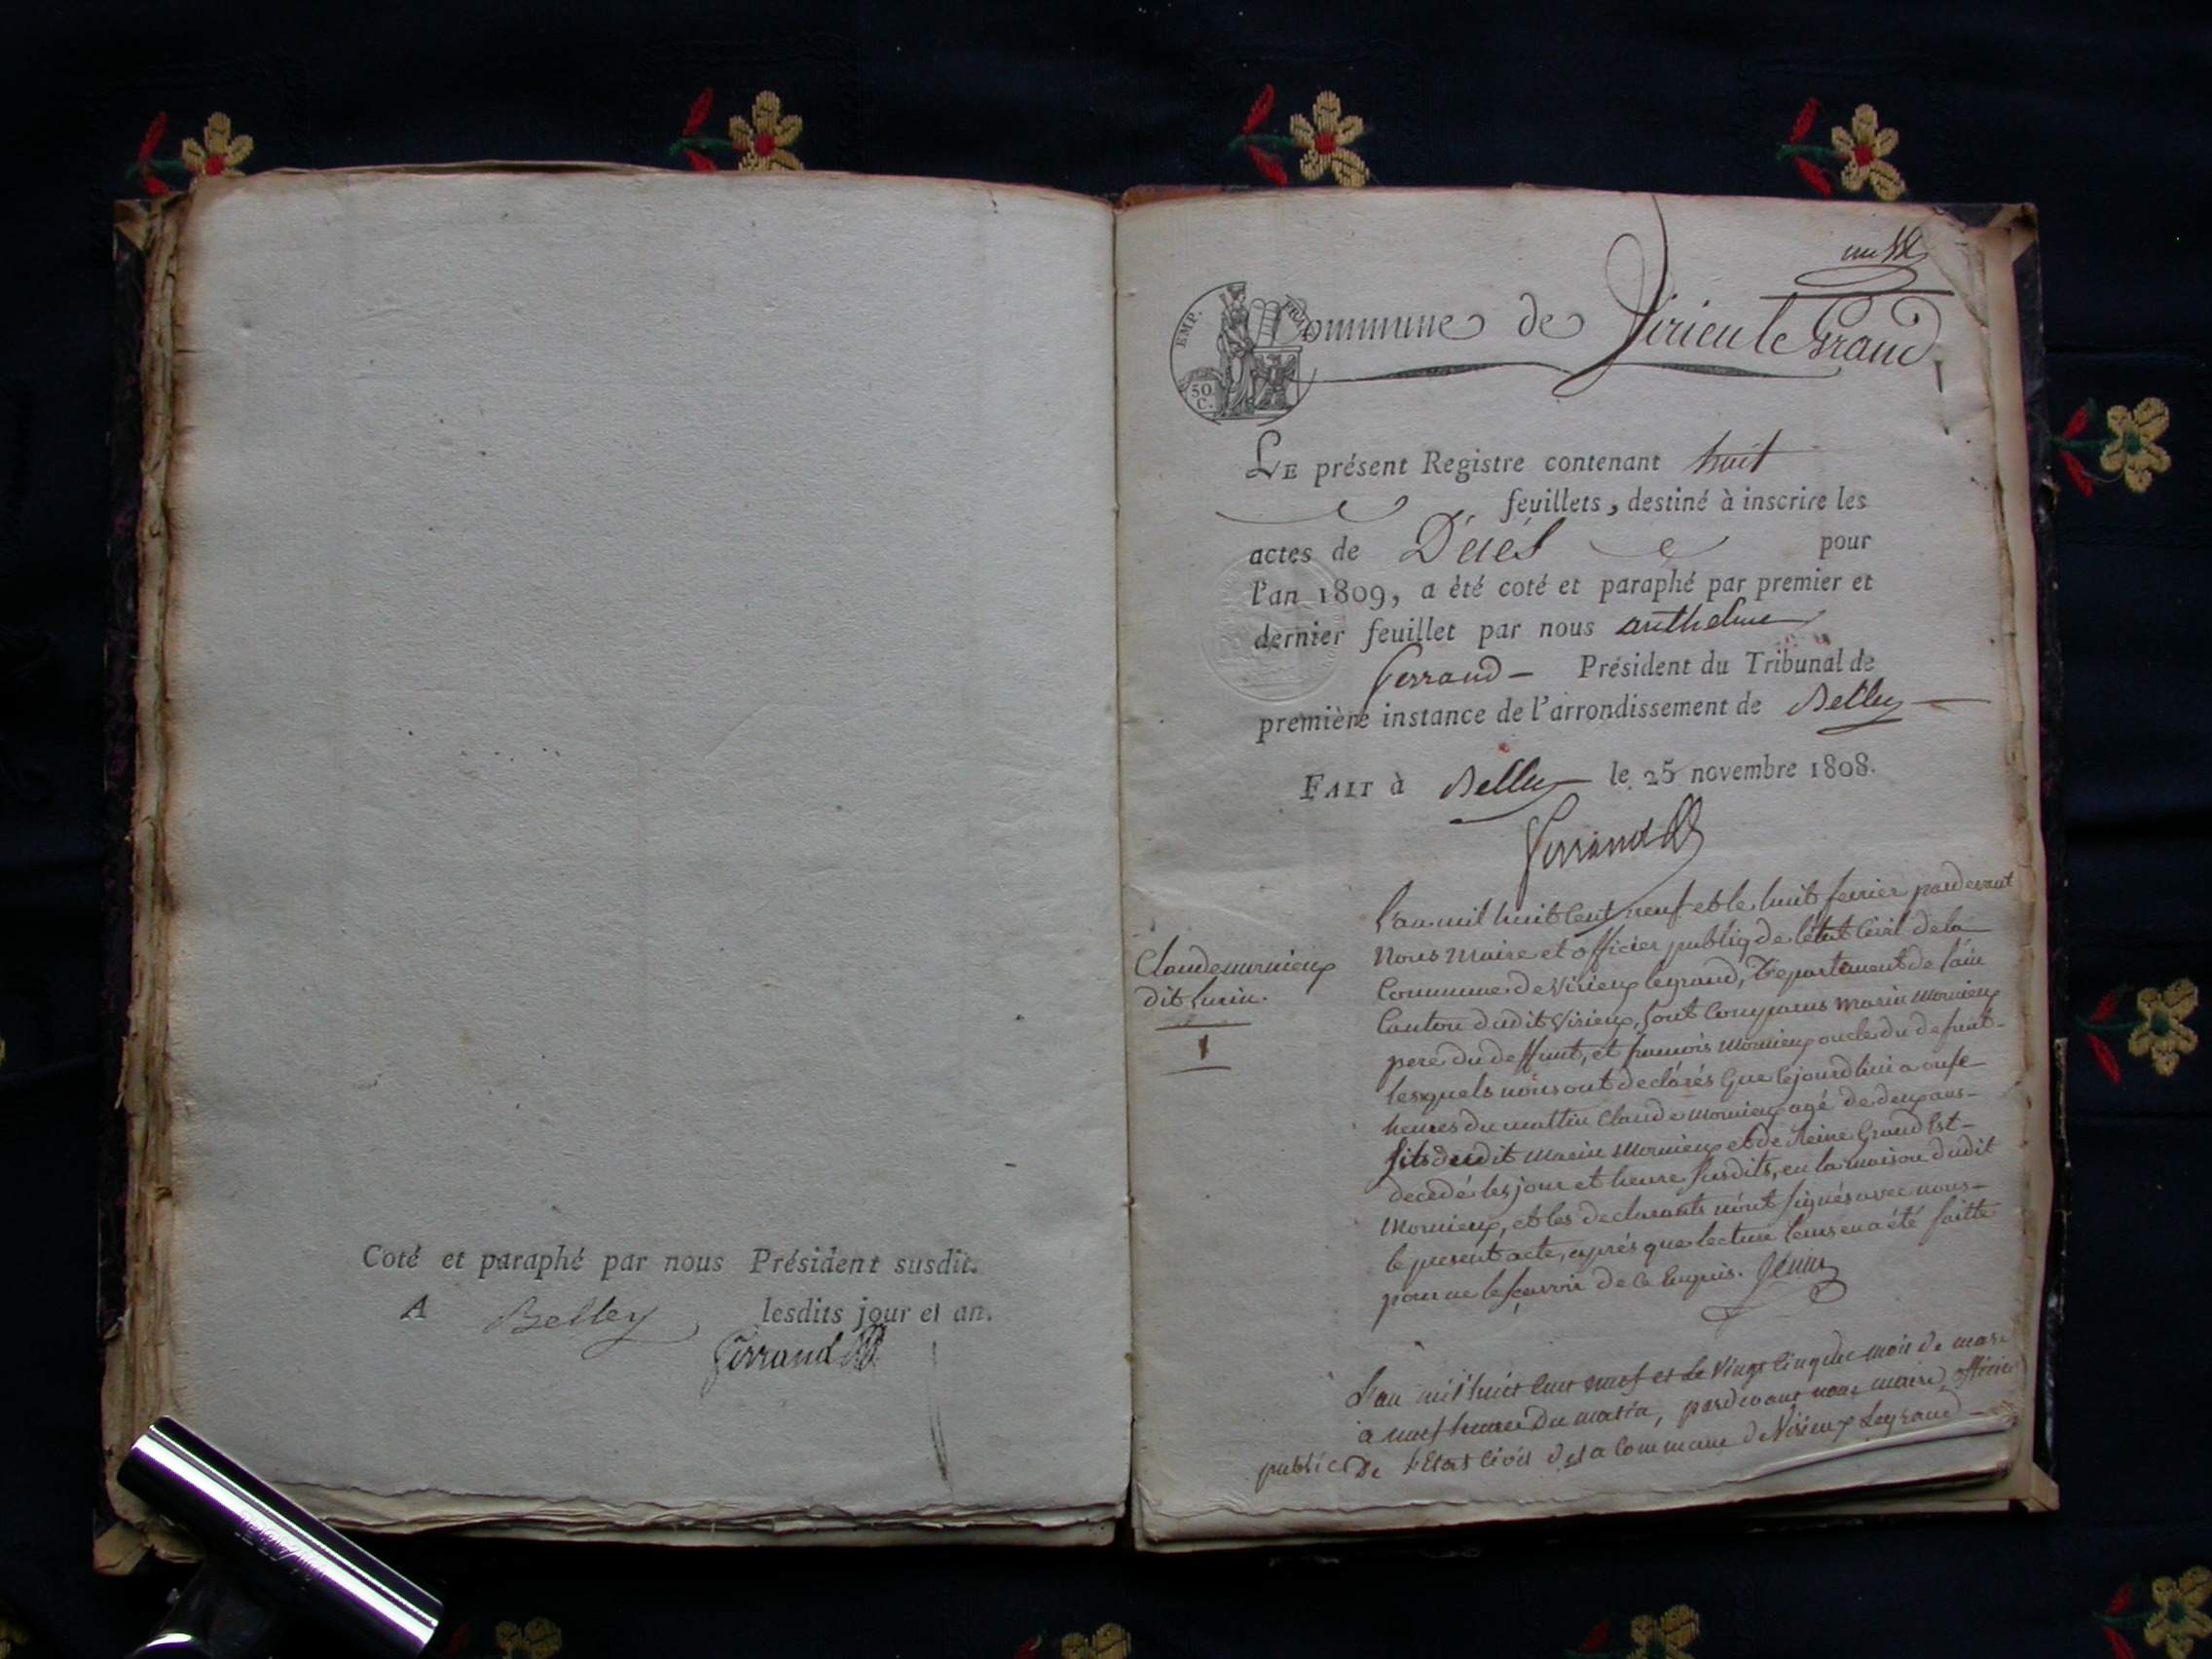 Coté et paraphé par nous Président susdit.
A Belley lesdits jour et an.
Ferrand
EMP. FRAN
50
C.
Commune de Virieu le Grand
LE présent Registre contenant huit
feuillets, destiné à inscrire les
actes de Décés pour
l'an 1809, a été coté et paraphé par premier et
dernier feuillet par nous anthelme
ferrand – Président du Tribunal de
première instance de l'arrondissement de Belley
FAIT à Belley le 25 novembre 1808.
Ferrand
Claude mornieux
dit
1
L'an mil huit Cent neuf et le huit fevrier pardevant
Nous Maire et officier publiq de l'état Civil de la
Commune de Virieux legrand, Departament de l'ain
Canton dudit Virieux, Sont Comparus marin Mornieux
pere du deffunt, et francois Mornieux oncle du defunt –
lesquels nous ont declarés que Cejourdhui a onse
heures du mattin Claude mornieux agé de deux ans –
fils dudit Marin Mornieux et de Reine Grand Est –
decedé les jour et heure susdits, en la maison dudit
Mornieux, et les declarants n'ont signés avec nous –
le present acte, aprés que lecture leurs en a été faitte
pour ne le sçavoir de ce Enquis.
L'an mil huit Cent neuf et le Vingt Cinq du mois de mars
a neuf heures du matin, pardevant nous maire, officier
public de l'Etat Civil de la Commune de Virieux Legrand –